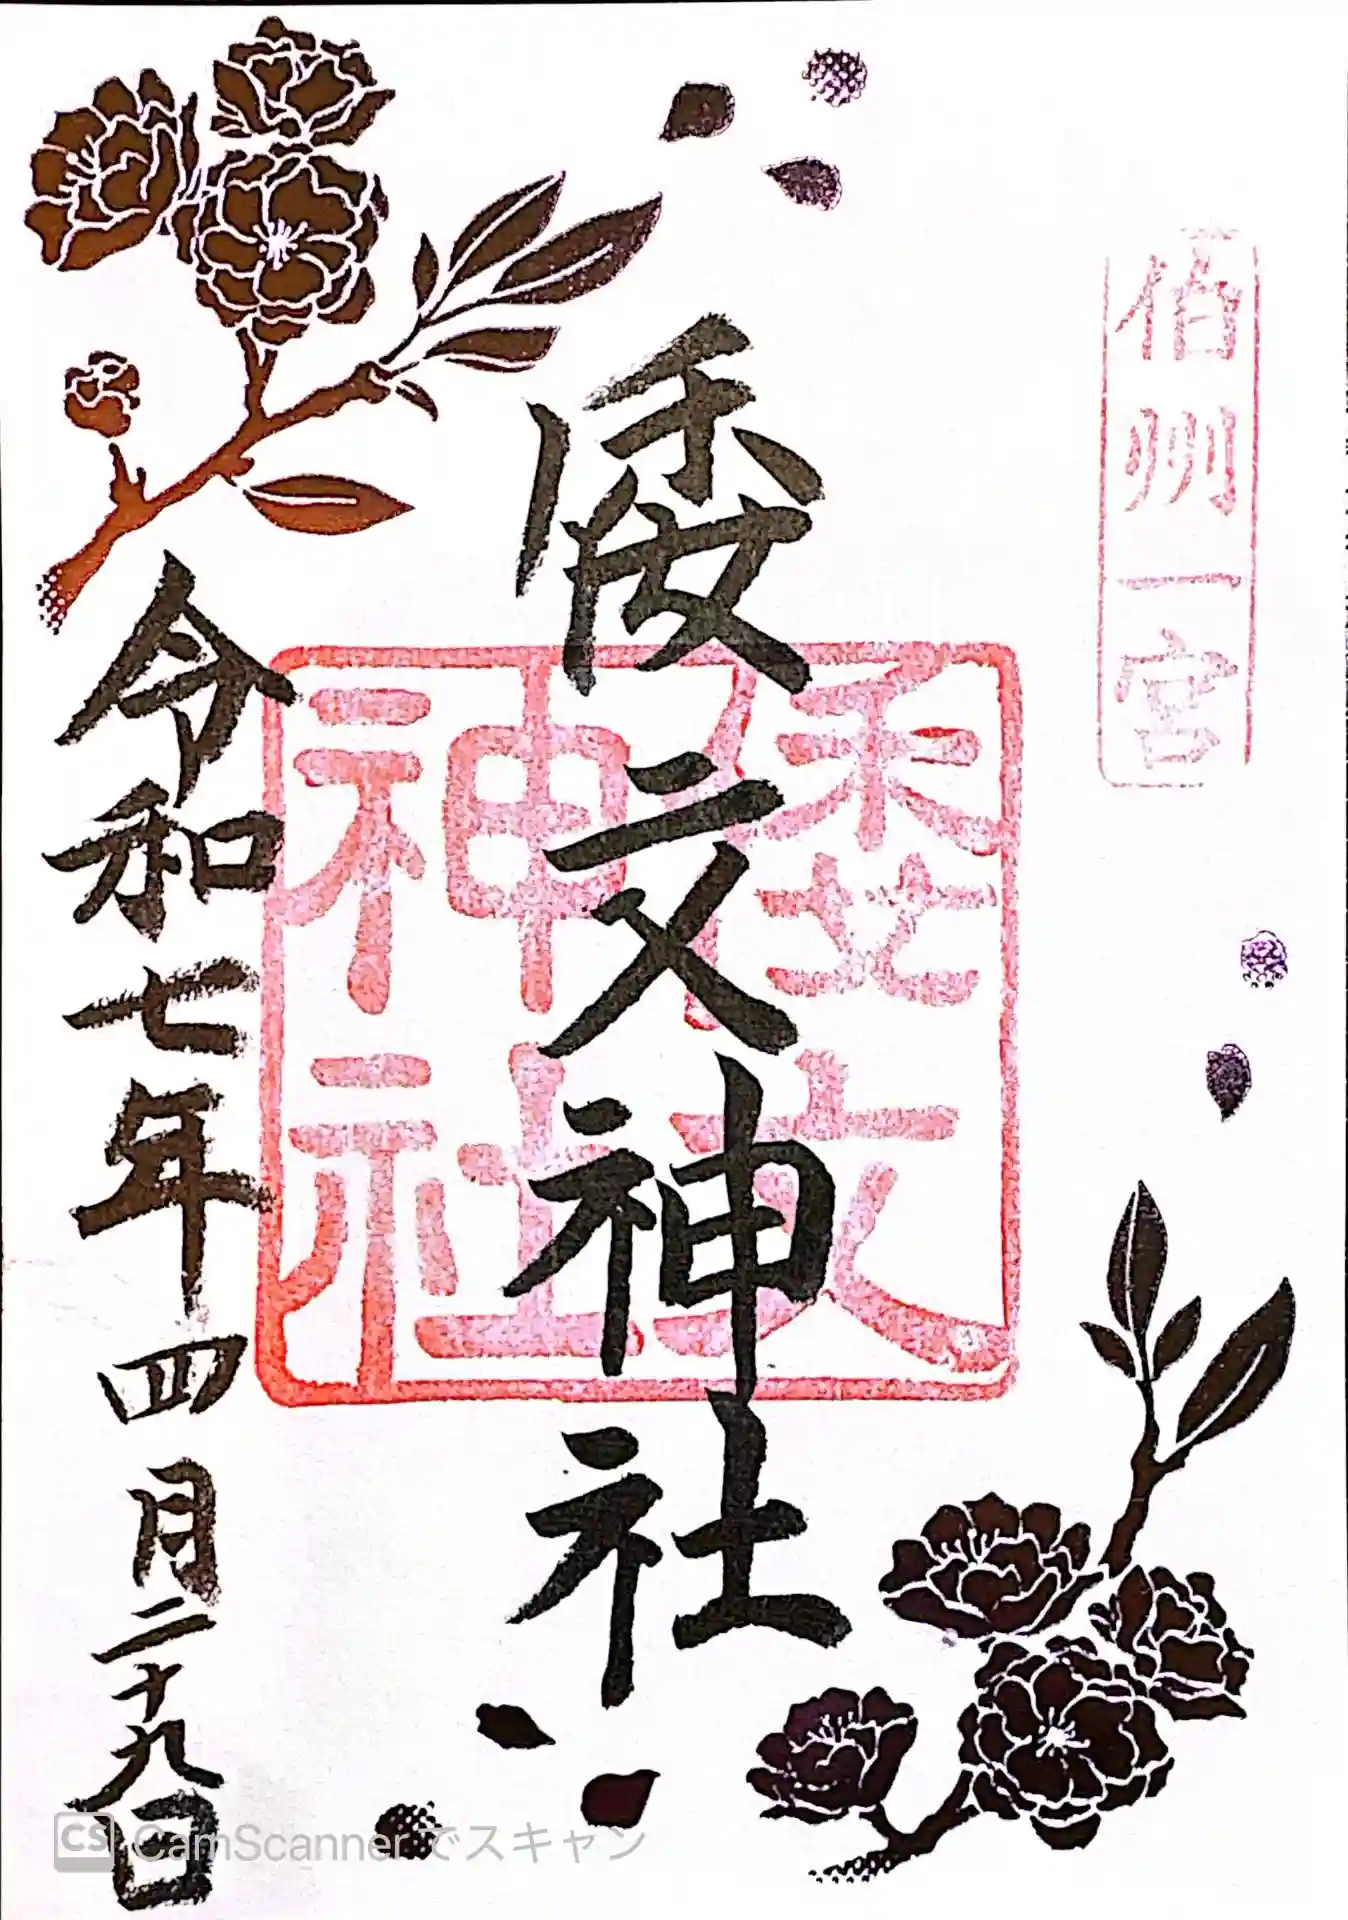 伯州一宮
倭文神社
倭文神社
令和七年四月二十九日
CS CamScannerでスキャン